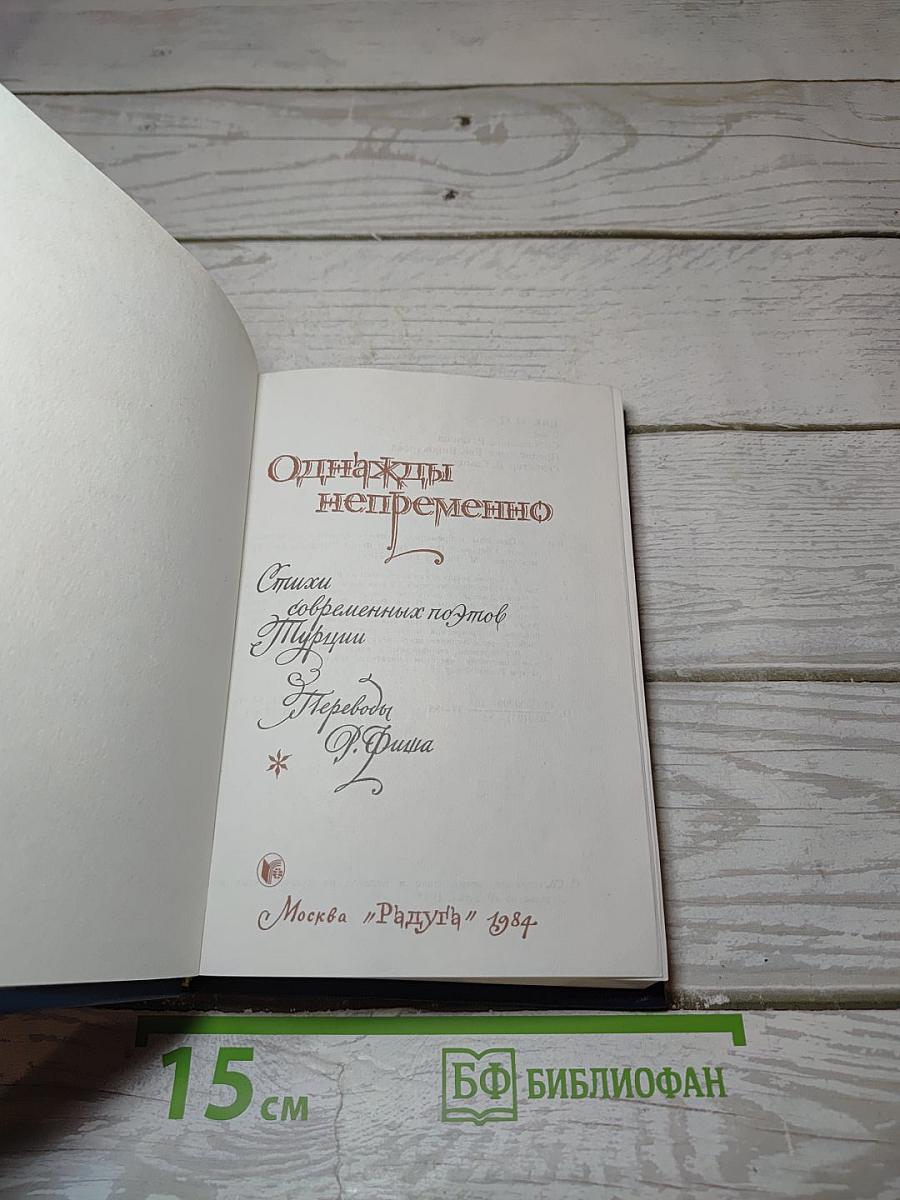 Однажды
непременно
Стихи
современных поэтов
Турции
Переводы
Р. Фиша
Москва „Радуга" 1984
15 см
БФ БИБЛИОФАН